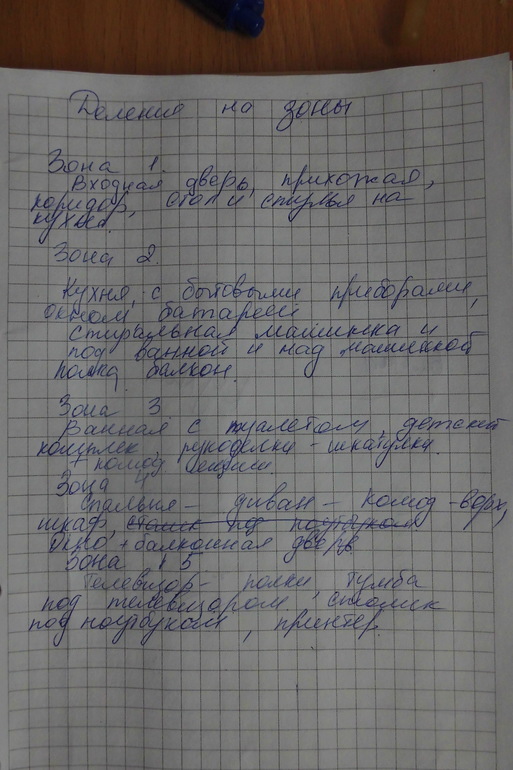 Деления на зоны
Зона 1.
Входная дверь, прихожая,
коридор, стол и стулья на
кухне.
Зона 2.
Кухня, с бытовыми приборами,
окном батареей
стиральная машинка и
под ванной и над машинкой
полка, балкон.
Зона 3
Ванная с туалетом, детский
комплек, рукоделки - шкатулка.
+ комод
Зона 4
Спальня - диван - комод - верх,
шкаф, столик под ноутбуком
окно + балконная дверь
Зона 5
Телевизор - полки, тумба
под телевизором столик
под ноутбуком, принтер.